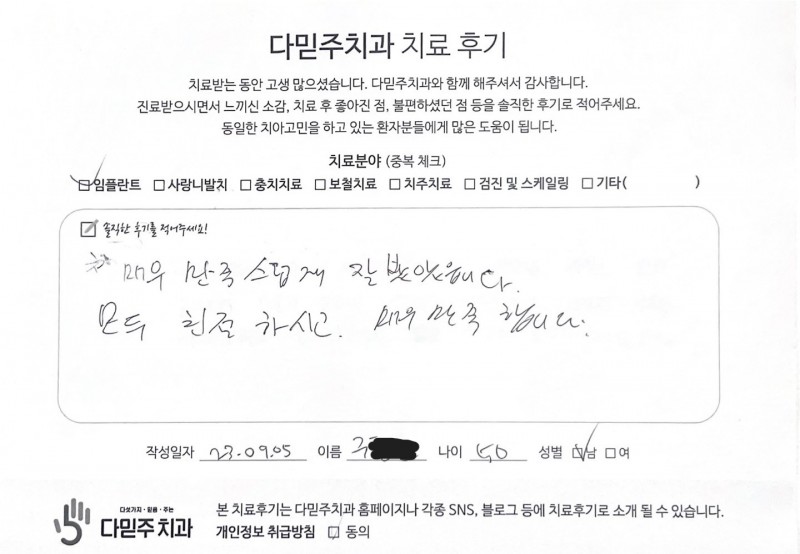 다믿주치과 치료 후기
치료받는 동안 고생 많으셨습니다. 다믿주치과와 함께 해주셔서 감사합니다.
진료받으시면서 느끼신 소감, 치료 후 좋아진 점, 불편하셨던 점 등을 솔직한 후기로 적어주세요.
동일한 치아고민을 하고 있는 환자분들에게 많은 도움이 됩니다.
치료분야 (중복 체크)
임플란트 사랑니발치 충치치료 보철치료 치주치료 검진 및 스케일링 기타( )
솔직한 후기를 적어주세요!
매우 만족스럽게 잘 받았읍니다.
모두 친절하시고. 매우 만족 합니다.
작성일자 23.09.05 이름 나이 50 성별 남 여
다섯가지·믿음·주는
다믿주치과
본 치료후기는 다믿주치과 홈페이지나 각종 SNS, 블로그 등에 치료후기로 소개 될 수 있습니다.
개인정보 취급방침 동의